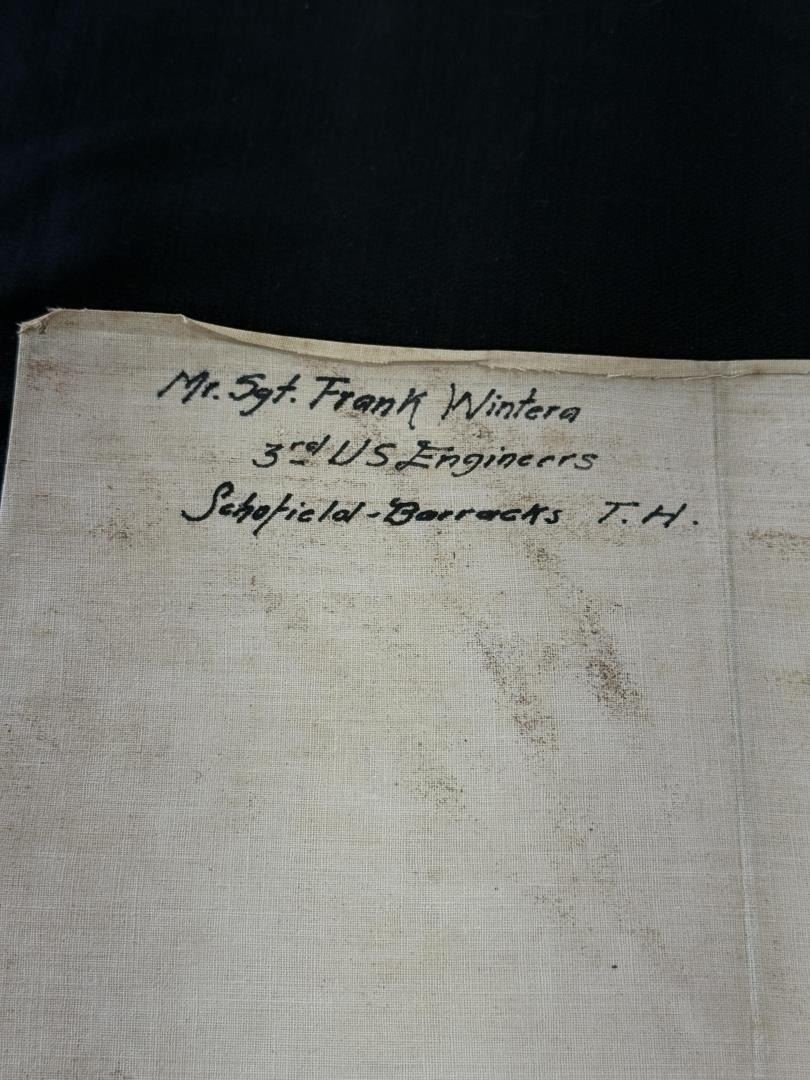 Mr. Sgt. Frank Wintera
3rd US Engineers
Schofield-Barracks T.H.